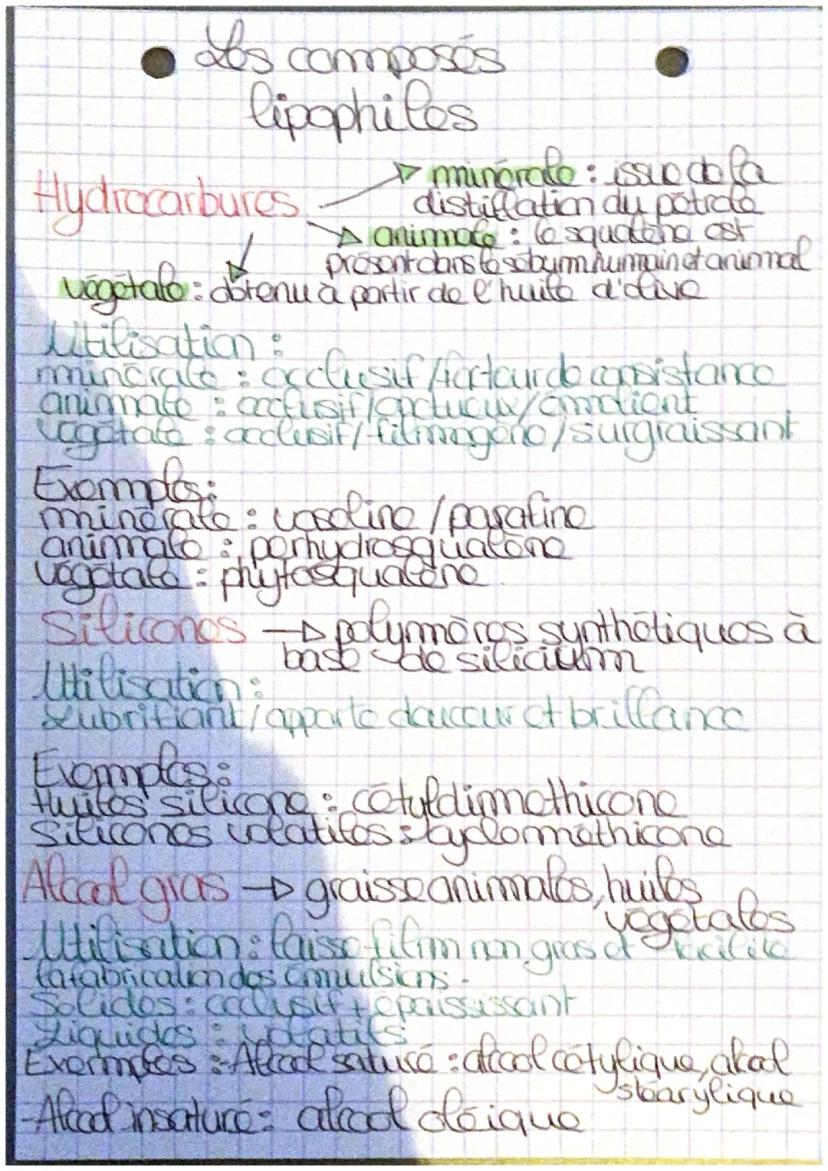 Les composés
lipophiles
Hydrocarbures
minérale : issue de la
distillation du pétrole
animale : le squalène est
présent dans le sébum humain et animal
végétale : obtenu à partir de l'huile d'olive
Utilisation :
minérale : occlusif / facteur de consistance
animale : occlusif / onctueux / émollient
végétale : occlusif / filmogène / surgraissant
Exemples :
minérale : vaseline / parafine
animale : perhydrosqualène
végétale : phytosqualène
Silicones → polymères synthétiques à
base de silicium
Utilisation :
Lubrifiant / apporte douceur et brillance
Exemples :
Huiles silicone : cétyldimethicone
Silicones volatiles : cyclomethicone
Alcool gras → graisse animales, huiles
végétales
Utilisation : laisse film non gras et facilite
la fabrication des émulsions.
Solides : occlusif + épaississant
Liquides : volatils
Exemples : -Alcool saturé : alcool cétylique, alcool
stéarylique
-Alcool insaturé : alcool oléique